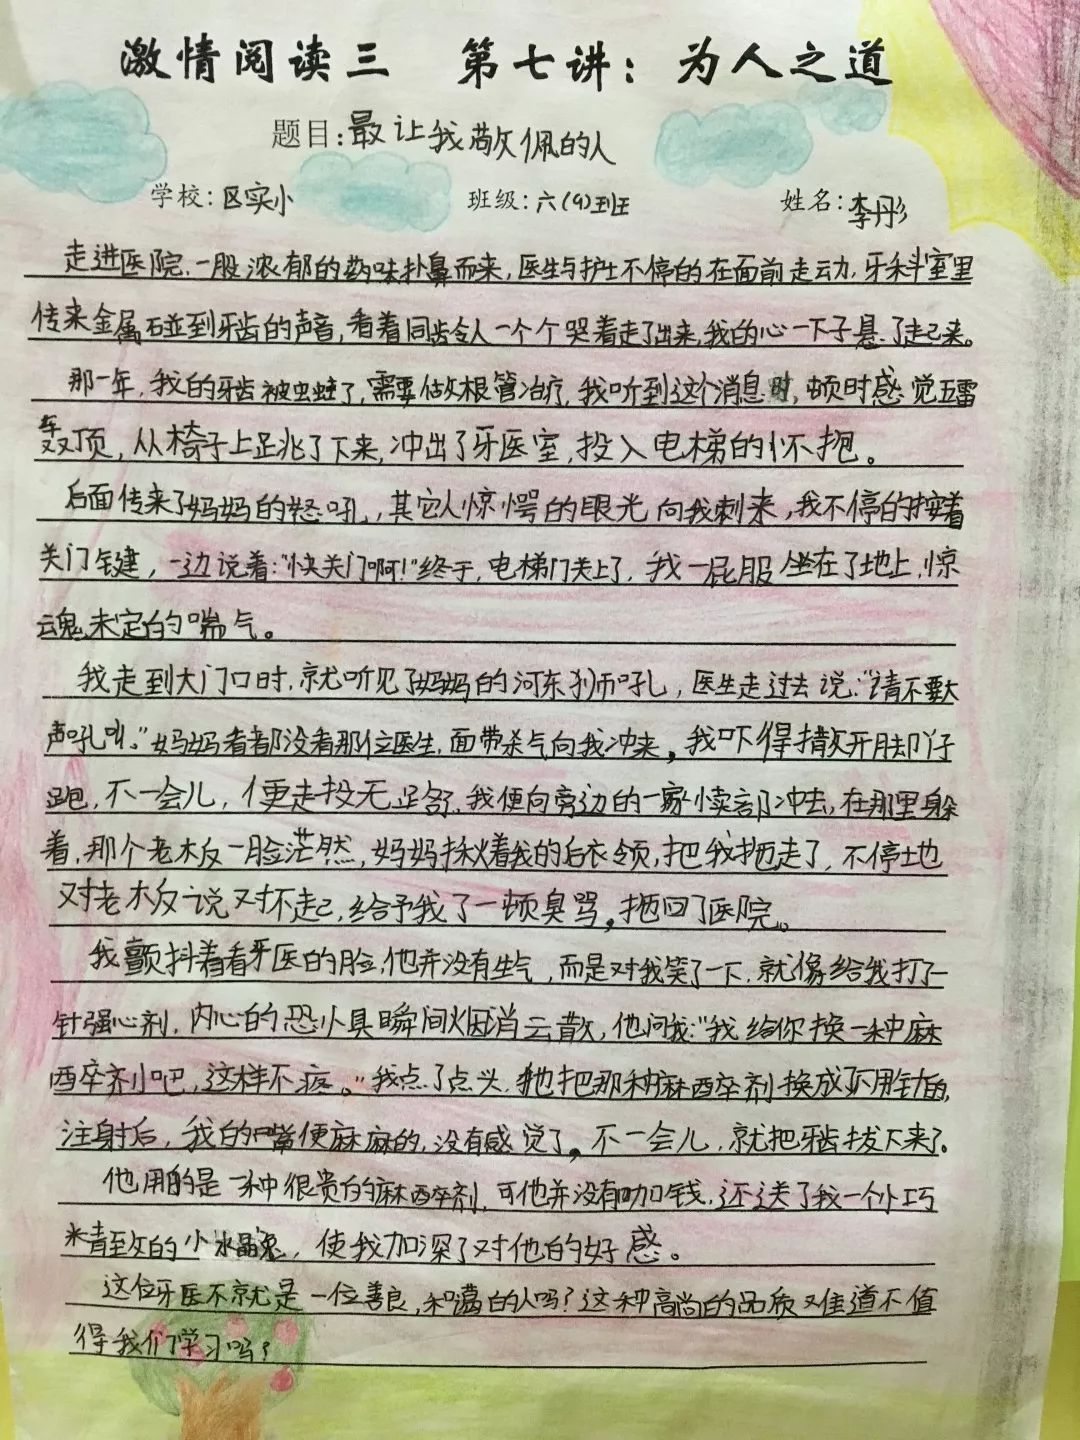 激情阅读三 第七讲：为人之道
题目：最让我敬佩的人
学校：区实小 班级：六(9)班 姓名：李彤
走进医院，一股浓郁的药味扑鼻而来，医生与护士不停的在面前走动，牙科室里
传来金属碰到牙齿的声音，看着同龄人一个个哭着走了出来，我的心一下子悬了起来。
那一年，我的牙齿被虫蛀了，需要做根管治疗，我听到这个消息时，顿时感觉五雷
轰顶，从椅子上跳了下来，冲出了牙医室，投入电梯的怀抱。
后面传来了妈妈的怒吼，其它人惊愕的眼光向我刺来，我不停的按着
关门键，一边说着："快关门啊！"终于，电梯门关上了，我一屁股坐在了地上，惊
魂未定的喘气。
我走到大门口时，就听见了妈妈的河东狮吼，医生走过去说："请不要大
声吼叫。"妈妈看都没看那位医生，面带杀气向我冲来，我吓得撒开脚丫仔
跑，不一会儿，便走投无路，我便向旁边的一家小卖部冲去，在那里躲
着，那个老板一脸茫然，妈妈揪着我的后衣领，把我拖走了，不停地
对老板说对不起，给予我了一顿臭骂，拖回了医院。
我颤抖着看牙医的脸，他并没有生气，而是对我笑了一下，就像给我打了一
针强心剂，内心的恐惧瞬间烟消云散，他问我："我给你换一种麻
醉剂吧，这样不疼。"我点了点头，他把那种麻醉剂换成了不用针的，
注射后，我的嘴便麻麻的，没有感觉了，不一会儿，就把牙齿拔下来了。
他用的是一种很贵的麻醉剂，可他并没有加钱，还送了我一个小巧
精致的小水晶兔，使我加深了对他的好感。
这位牙医不就是一位善良，和蔼的人吗？这种高尚的品质难道不值
得我们学习吗？